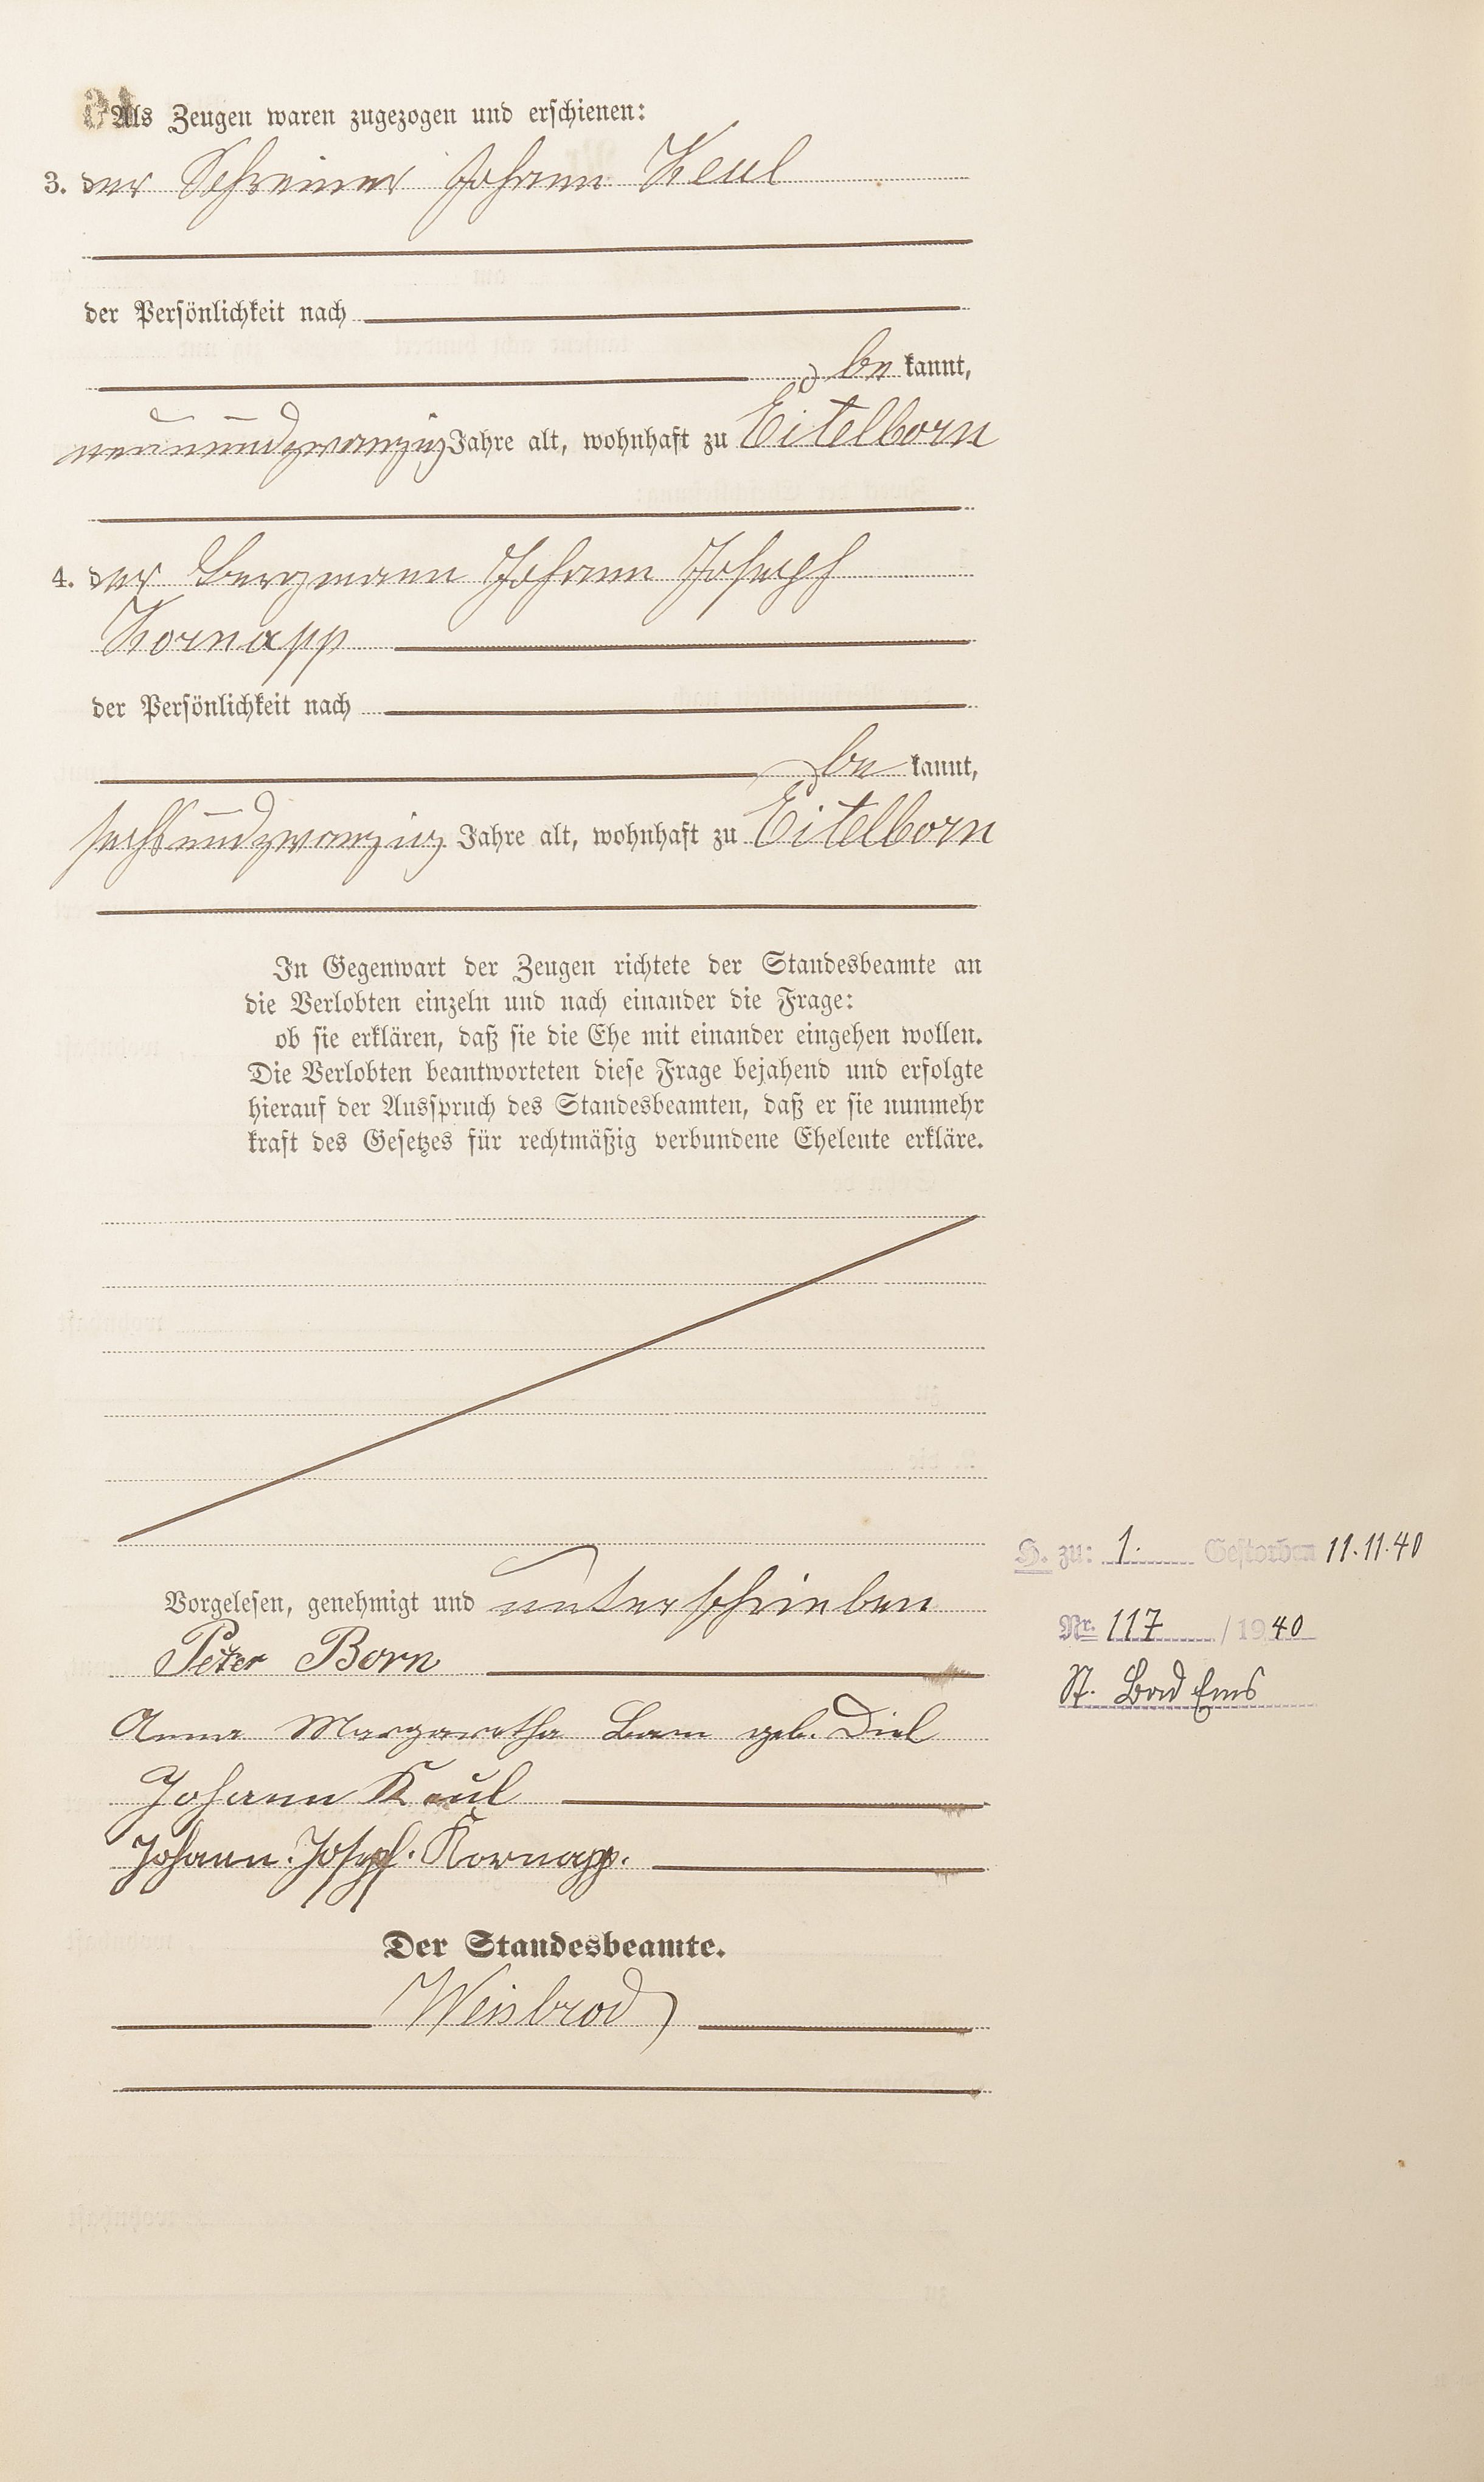 Als Zeugen waren zugezogen und erschienen:
3. der Schreiner Johann Keul
der Persönlichkeit nach
be kannt,
neunundzwanzig Jahre alt, wohnhaft zu Eitelborn
4. der Bergmann Johann Joseph
Kornapp
der Persönlichkeit nach
be kannt,
sechsundzwanzig Jahre alt, wohnhaft zu Eitelborn
In Gegenwart der Zeugen richtete der Standesbeamte an
die Verlobten einzeln und nach einander die Frage:
ob sie erklären, daß sie die Ehe mit einander eingehen wollen.
Die Verlobten beantworteten diese Frage bejahend und erfolgte
hierauf der Ausspruch des Standesbeamten, daß er sie nunmehr
kraft des Gesetzes für rechtmäßig verbundene Eheleute erkläre.
H. zu: 1. Gestorben 11.11.40
Vorgelesen, genehmigt und unterschrieben
Nr. 117 / 1940
Peter Born
St. Bad Ems
Anna Margaretha Born geb. Diel
Johann Keul
Johann. Joseph. Kornapp.
Der Standesbeamte.
Weisbrod